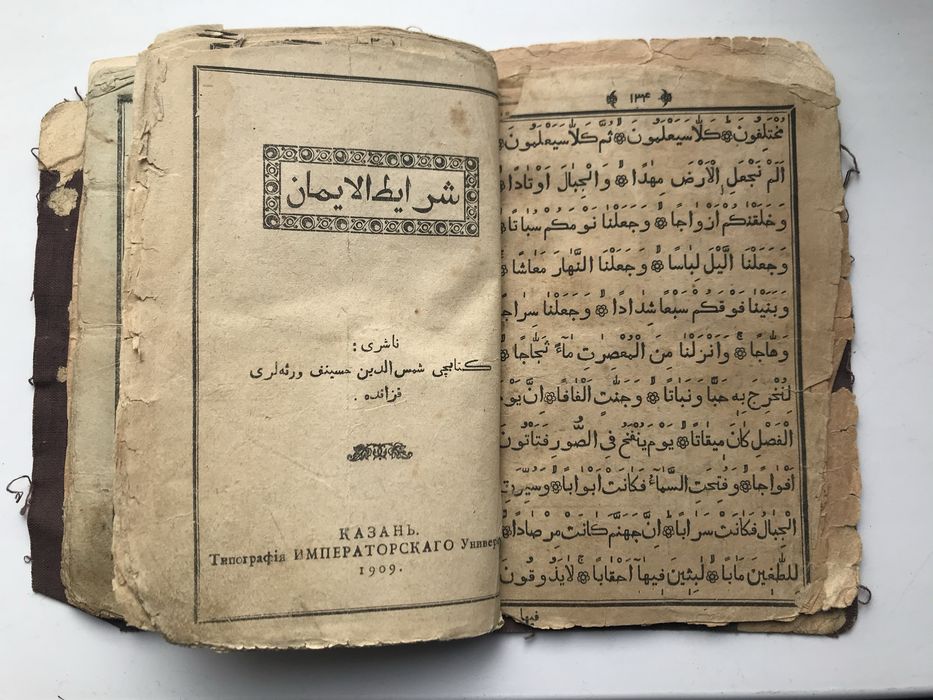 شرايط الايمان
ناشرى :
كتابچى شمس الدين حسينف ورثه‌لرى
قزانده .
КАЗАНЬ.
Типографія ИМПЕРАТОРСКАГО Универ
1909.
١٣۴
مُخْتَلِفُونَ كَلَّا سَيَعْلَمُونَ ثُمَّ كَلَّا سَيَعْلَمُونَ
اَلَمْ نَجْعَلِ الْاَرْضَ مِهٰدًا وَالْجِبَالَ اَوْتَادًا
وَخَلَقْنٰكُمْ اَزْوَاجًا وَجَعَلْنَا نَوْمَكُمْ سُبَاتًا
وَجَعَلْنَا الَّيْلَ لِبَاسًا وَجَعَلْنَا النَّهَارَ مَعَاشًا
وَبَنَيْنَا فَوْقَكُمْ سَبْعًا شِدَادًا وَجَعَلْنَا سِرَاجًا
وَهَّاجًا وَاَنْزَلْنَا مِنَ الْمُعْصِرٰتِ مَآءً ثَجَّاجًا
لِنُخْرِجَ بِهٖ حَبًّا وَنَبَاتًا وَجَنّٰتٍ اَلْفَافًا اِنَّ يَوْمَ
الْفَصْلِ كَانَ مِيقَاتًا يَوْمَ يُنْفَخُ فِى الصُّورِ فَتَاْتُونَ
اَفْوَاجًا وَفُتِحَتِ السَّمَآءُ فَكَانَتْ اَبْوَابًا وَسُيِّرَتِ
الْجِبَالُ فَكَانَتْ سَرَابًا اِنَّ جَهَنَّمَ كَانَتْ مِرْصَادًا
لِلطّٰغِينَ مَاٰبًا لٰبِثِينَ فِيهَآ اَحْقَابًا لَايَذُوقُونَ
فيها